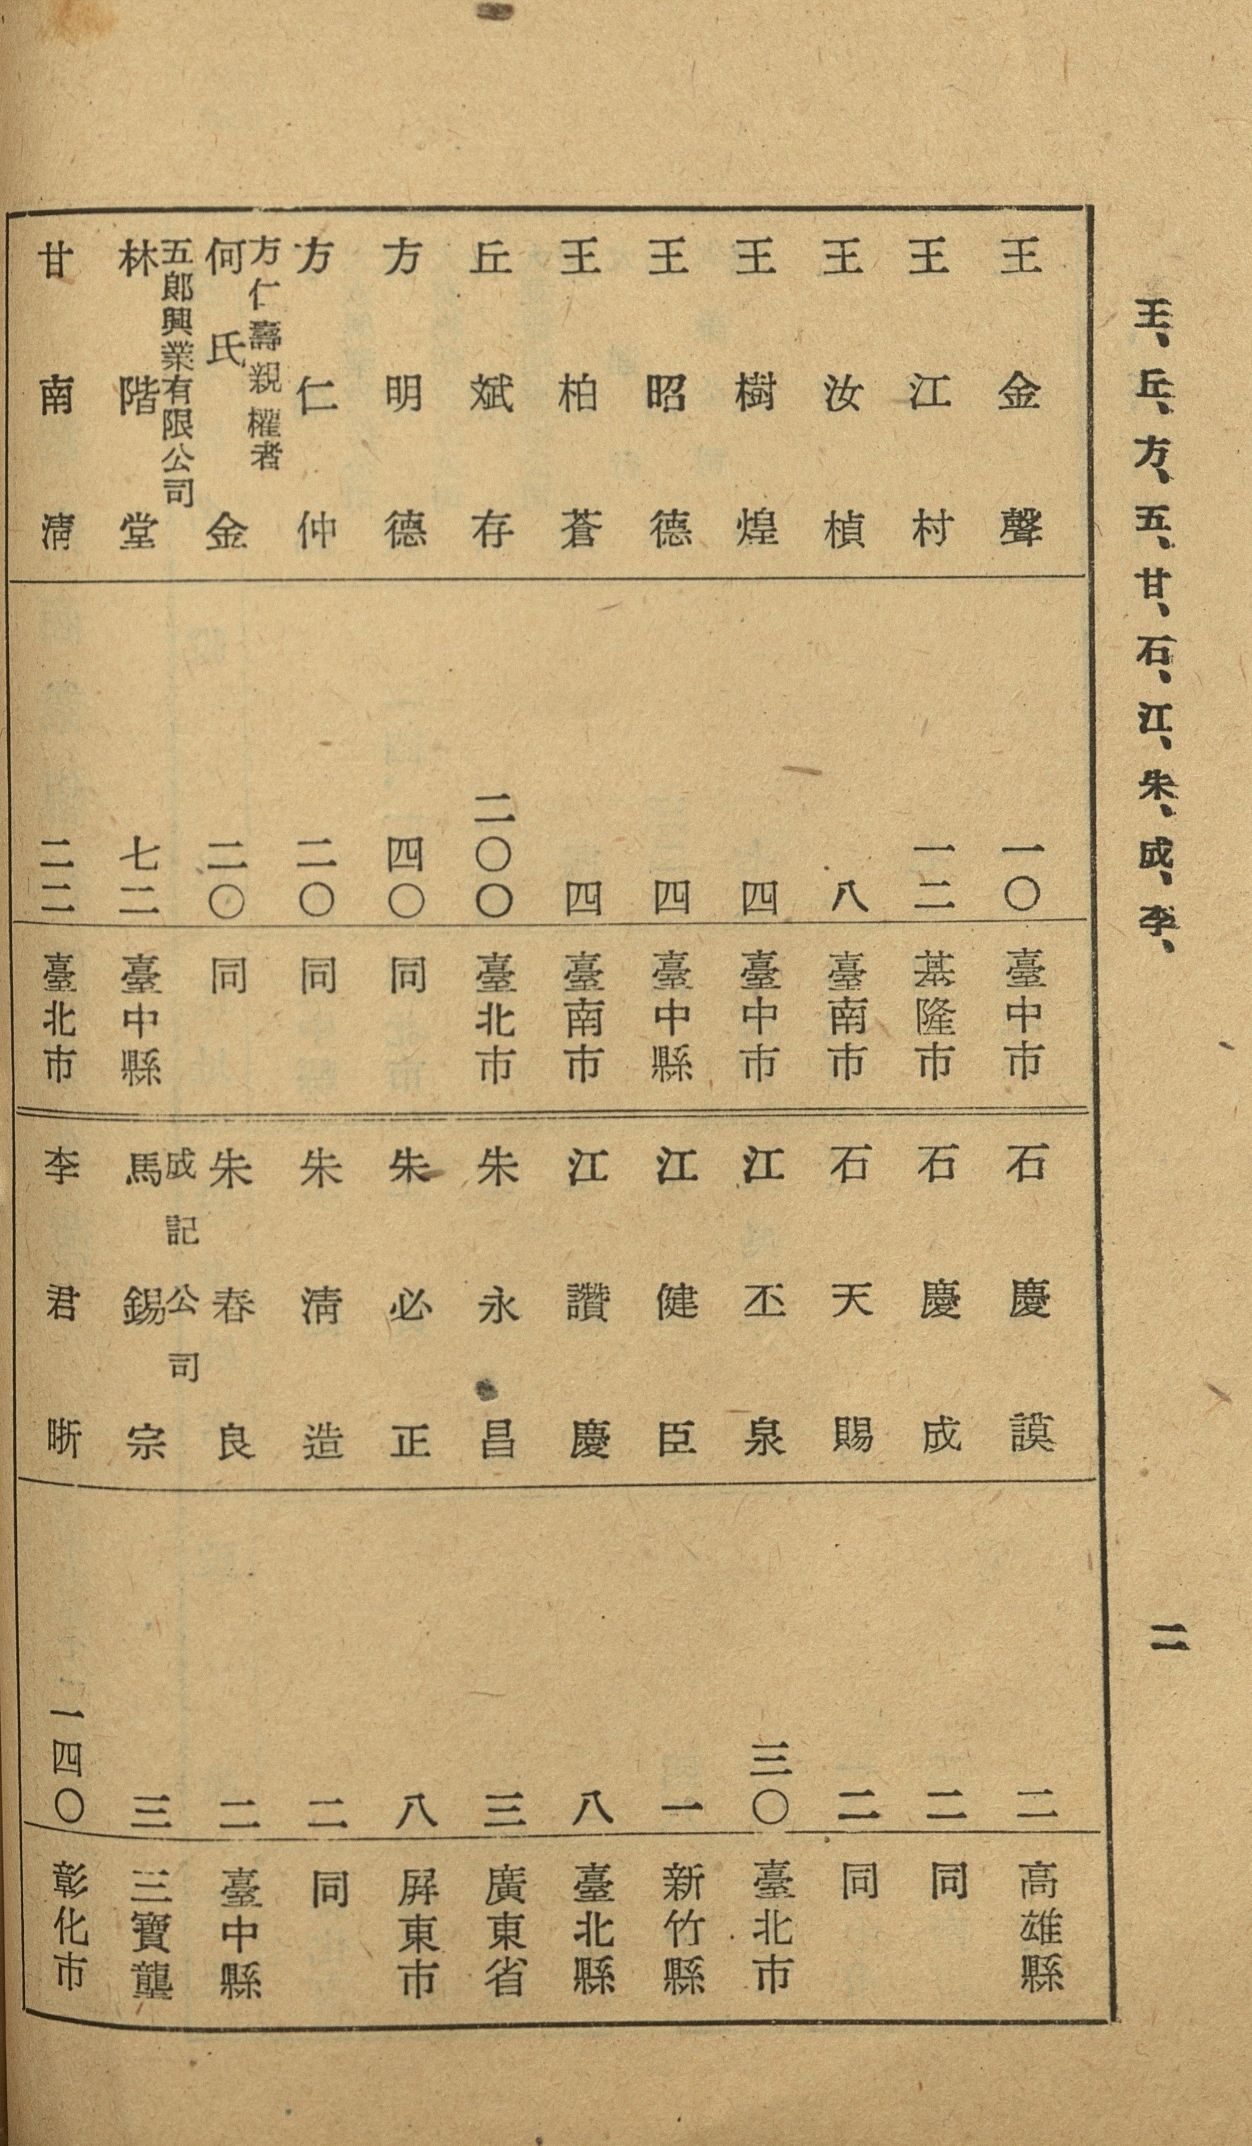 王、丘、方、五、甘、石、江、朱、成、李、
二
王金聲 一〇 臺中市
王江村 一二 基隆市
王汝楨 八 臺南市
王樹煌 四 臺中市
王昭德 四 臺中縣
王柏蒼 四 臺南市
丘斌存 二〇〇 臺北市
方明德 四〇 同
方仁仲 二〇 同
方仁壽親權者
何氏金 二〇 同
五郞興業有限公司
林階堂 七二 臺中縣
甘南淸 二二 臺北市
石慶謨 二 高雄縣
石慶成 二 同
石天賜 二 同
江丕泉 三〇 臺北市
江健臣 一 新竹縣
江讚慶 八 臺北縣
朱永昌 三 廣東省
朱必正 八 屏東市
朱淸造 二 同
朱春良 二 臺中縣
成記公司
馬錫宗 三 三寶壟
李君晰 一四〇 彰化市